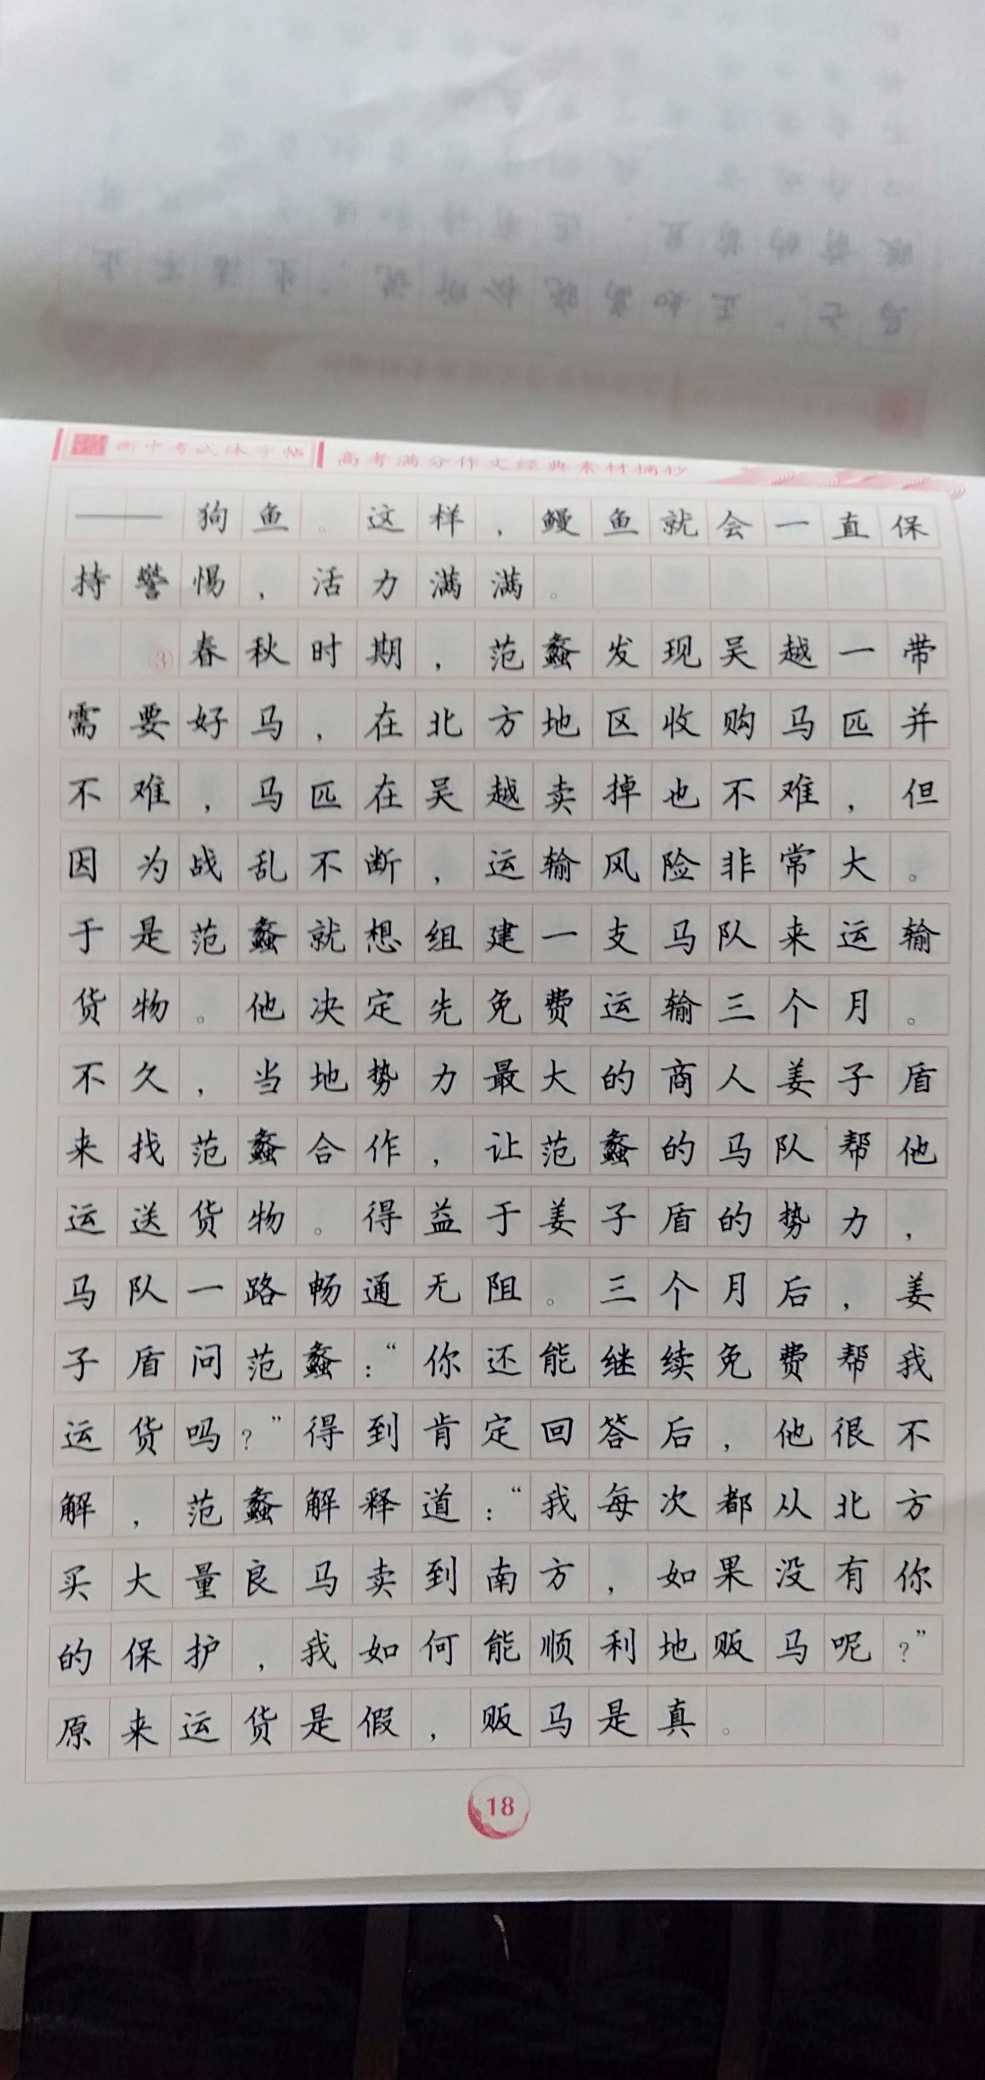 衡中考试体字帖 高考满分作文经典素材摘抄
——狗鱼。这样，鳗鱼就会一直保
持警惕，活力满满。
③春秋时期，范蠡发现吴越一带
需要好马，在北方地区收购马匹并
不难，马匹在吴越卖掉也不难，但
因为战乱不断，运输风险非常大。
于是范蠡就想组建一支马队来运输
货物。他决定先免费运输三个月。
不久，当地势力最大的商人姜子盾
来找范蠡合作，让范蠡的马队帮他
运送货物。得益于姜子盾的势力，
马队一路畅通无阻。三个月后，姜
子盾问范蠡：“你还能继续免费帮我
运货吗？”得到肯定回答后，他很不
解，范蠡解释道：“我每次都从北方
买大量良马卖到南方，如果没有你
的保护，我如何能顺利地贩马呢？”
原来运货是假，贩马是真。
18